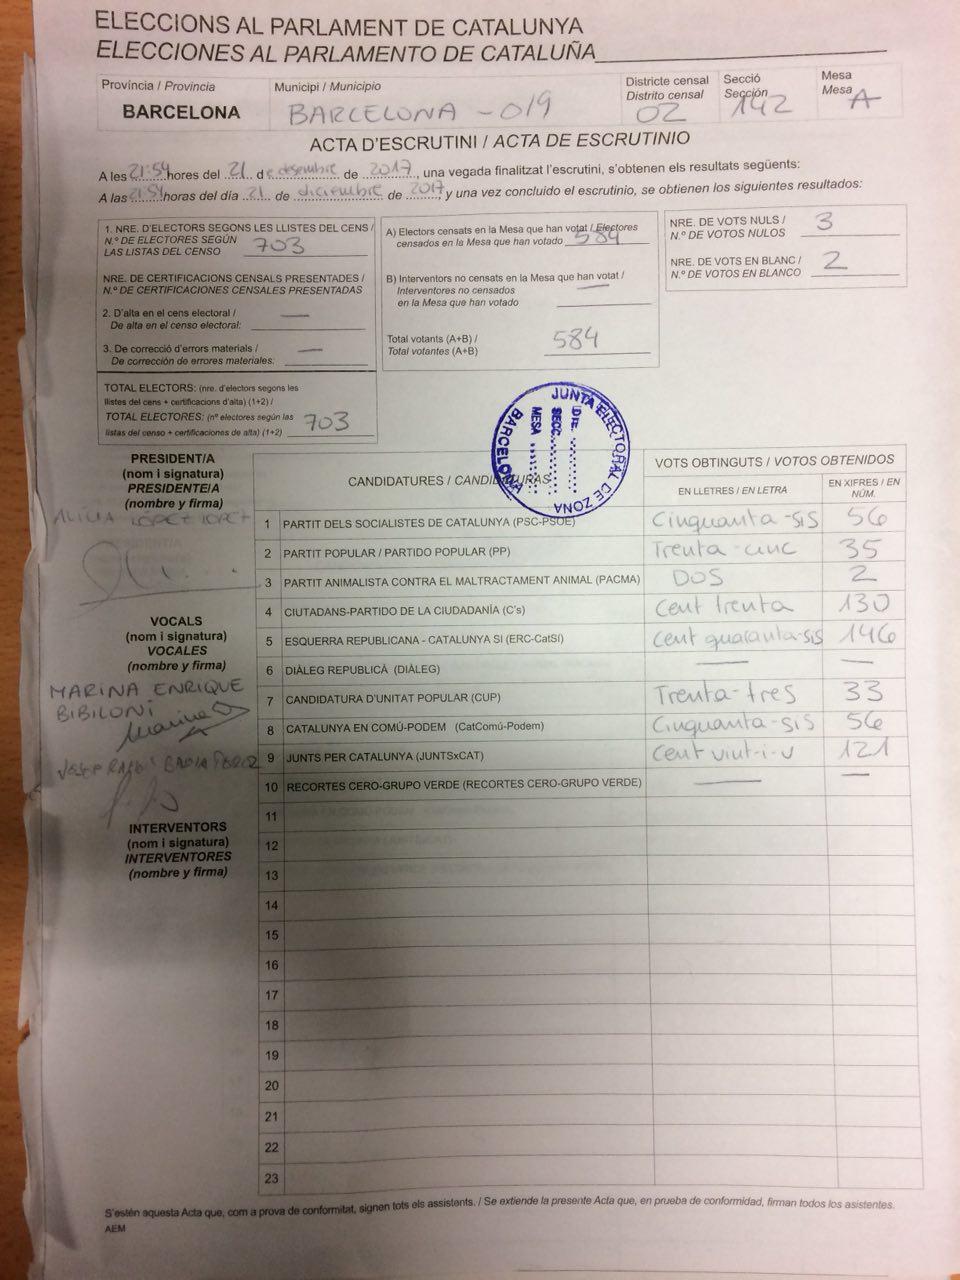 ELECCIONS AL PARLAMENT DE CATALUNYA
ELECCIONES AL PARLAMENTO DE CATALUÑA
Província / Provincia
BARCELONA
Municipi / Municipio
BARCELONA - 019
Districte censal
Distrito censal
02
Secció
Sección
142
Mesa
Mesa
A
ACTA D'ESCRUTINI / ACTA DE ESCRUTINIO
A les 21:54 hores del 21 d desembre de 2017, una vegada finalitzat l'escrutini, s'obtenen els resultats següents:
A las 21:54 horas del día 21 de diciembre de 2017, y una vez concluido el escrutinio, se obtienen los siguientes resultados:
1. NRE. D'ELECTORS SEGONS LES LLISTES DEL CENS /
N.º DE ELECTORES SEGÚN
LAS LISTAS DEL CENSO 703
NRE. DE CERTIFICACIONS CENSALS PRESENTADES /
N.º DE CERTIFICACIONES CENSALES PRESENTADAS
2. D'alta en el cens electoral /
De alta en el censo electoral: —
3. De correcció d'errors materials /
De corrección de errores materiales: —
TOTAL ELECTORS: (nre. d'electors segons les
llistes del cens + certificacions d'alta) (1+2) /
TOTAL ELECTORES: (nº electores según las
listas del censo + certificaciones de alta) (1+2) 703
A) Electors censats en la Mesa que han votat / Electores
censados en la Mesa que han votado 584
B) Interventors no censats en la Mesa que han votat /
Interventores no censados
en la Mesa que han votado —
Total votants (A+B) /
Total votantes (A+B) 584
NRE. DE VOTS NULS /
N.º DE VOTOS NULOS 3
NRE. DE VOTS EN BLANC /
N.º DE VOTOS EN BLANCO 2
JUNTA ELECTORAL DE ZONA
BARCELONA
DTE.
SECC.
MESA
PRESIDENT/A
(nom i signatura)
PRESIDENTE/A
(nombre y firma)
ALICIA LÓPEZ LOPEZ
VOCALS
(nom i signatura)
VOCALES
(nombre y firma)
MARINA ENRIQUE
BIBILONI
Marina
INTERVENTORS
(nom i signatura)
INTERVENTORES
(nombre y firma)
CANDIDATURES / CANDIDATURAS
VOTS OBTINGUTS / VOTOS OBTENIDOS
EN LLETRES / EN LETRA
EN XIFRES / EN NÚM.
1 PARTIT DELS SOCIALISTES DE CATALUNYA (PSC-PSOE) Cinquanta-sis 56
2 PARTIT POPULAR / PARTIDO POPULAR (PP) Trenta-cinc 35
3 PARTIT ANIMALISTA CONTRA EL MALTRACTAMENT ANIMAL (PACMA) DOS 2
4 CIUTADANS-PARTIDO DE LA CIUDADANÍA (C's) Cent trenta 130
5 ESQUERRA REPUBLICANA - CATALUNYA SÍ (ERC-CatSí) Cent quaranta-sis 146
6 DIÀLEG REPUBLICÀ (DIÀLEG) — —
7 CANDIDATURA D'UNITAT POPULAR (CUP) Trenta-tres 33
8 CATALUNYA EN COMÚ-PODEM (CatComú-Podem) Cinquanta-sis 56
9 JUNTS PER CATALUNYA (JUNTSxCAT) Cent vint-i-u 121
10 RECORTES CERO-GRUPO VERDE (RECORTES CERO-GRUPO VERDE) — —
11
12
13
14
15
16
17
18
19
20
21
22
23
S'estén aquesta Acta que, com a prova de conformitat, signen tots els assistents. / Se extiende la presente Acta que, en prueba de conformidad, firman todos los asistentes.
AEM